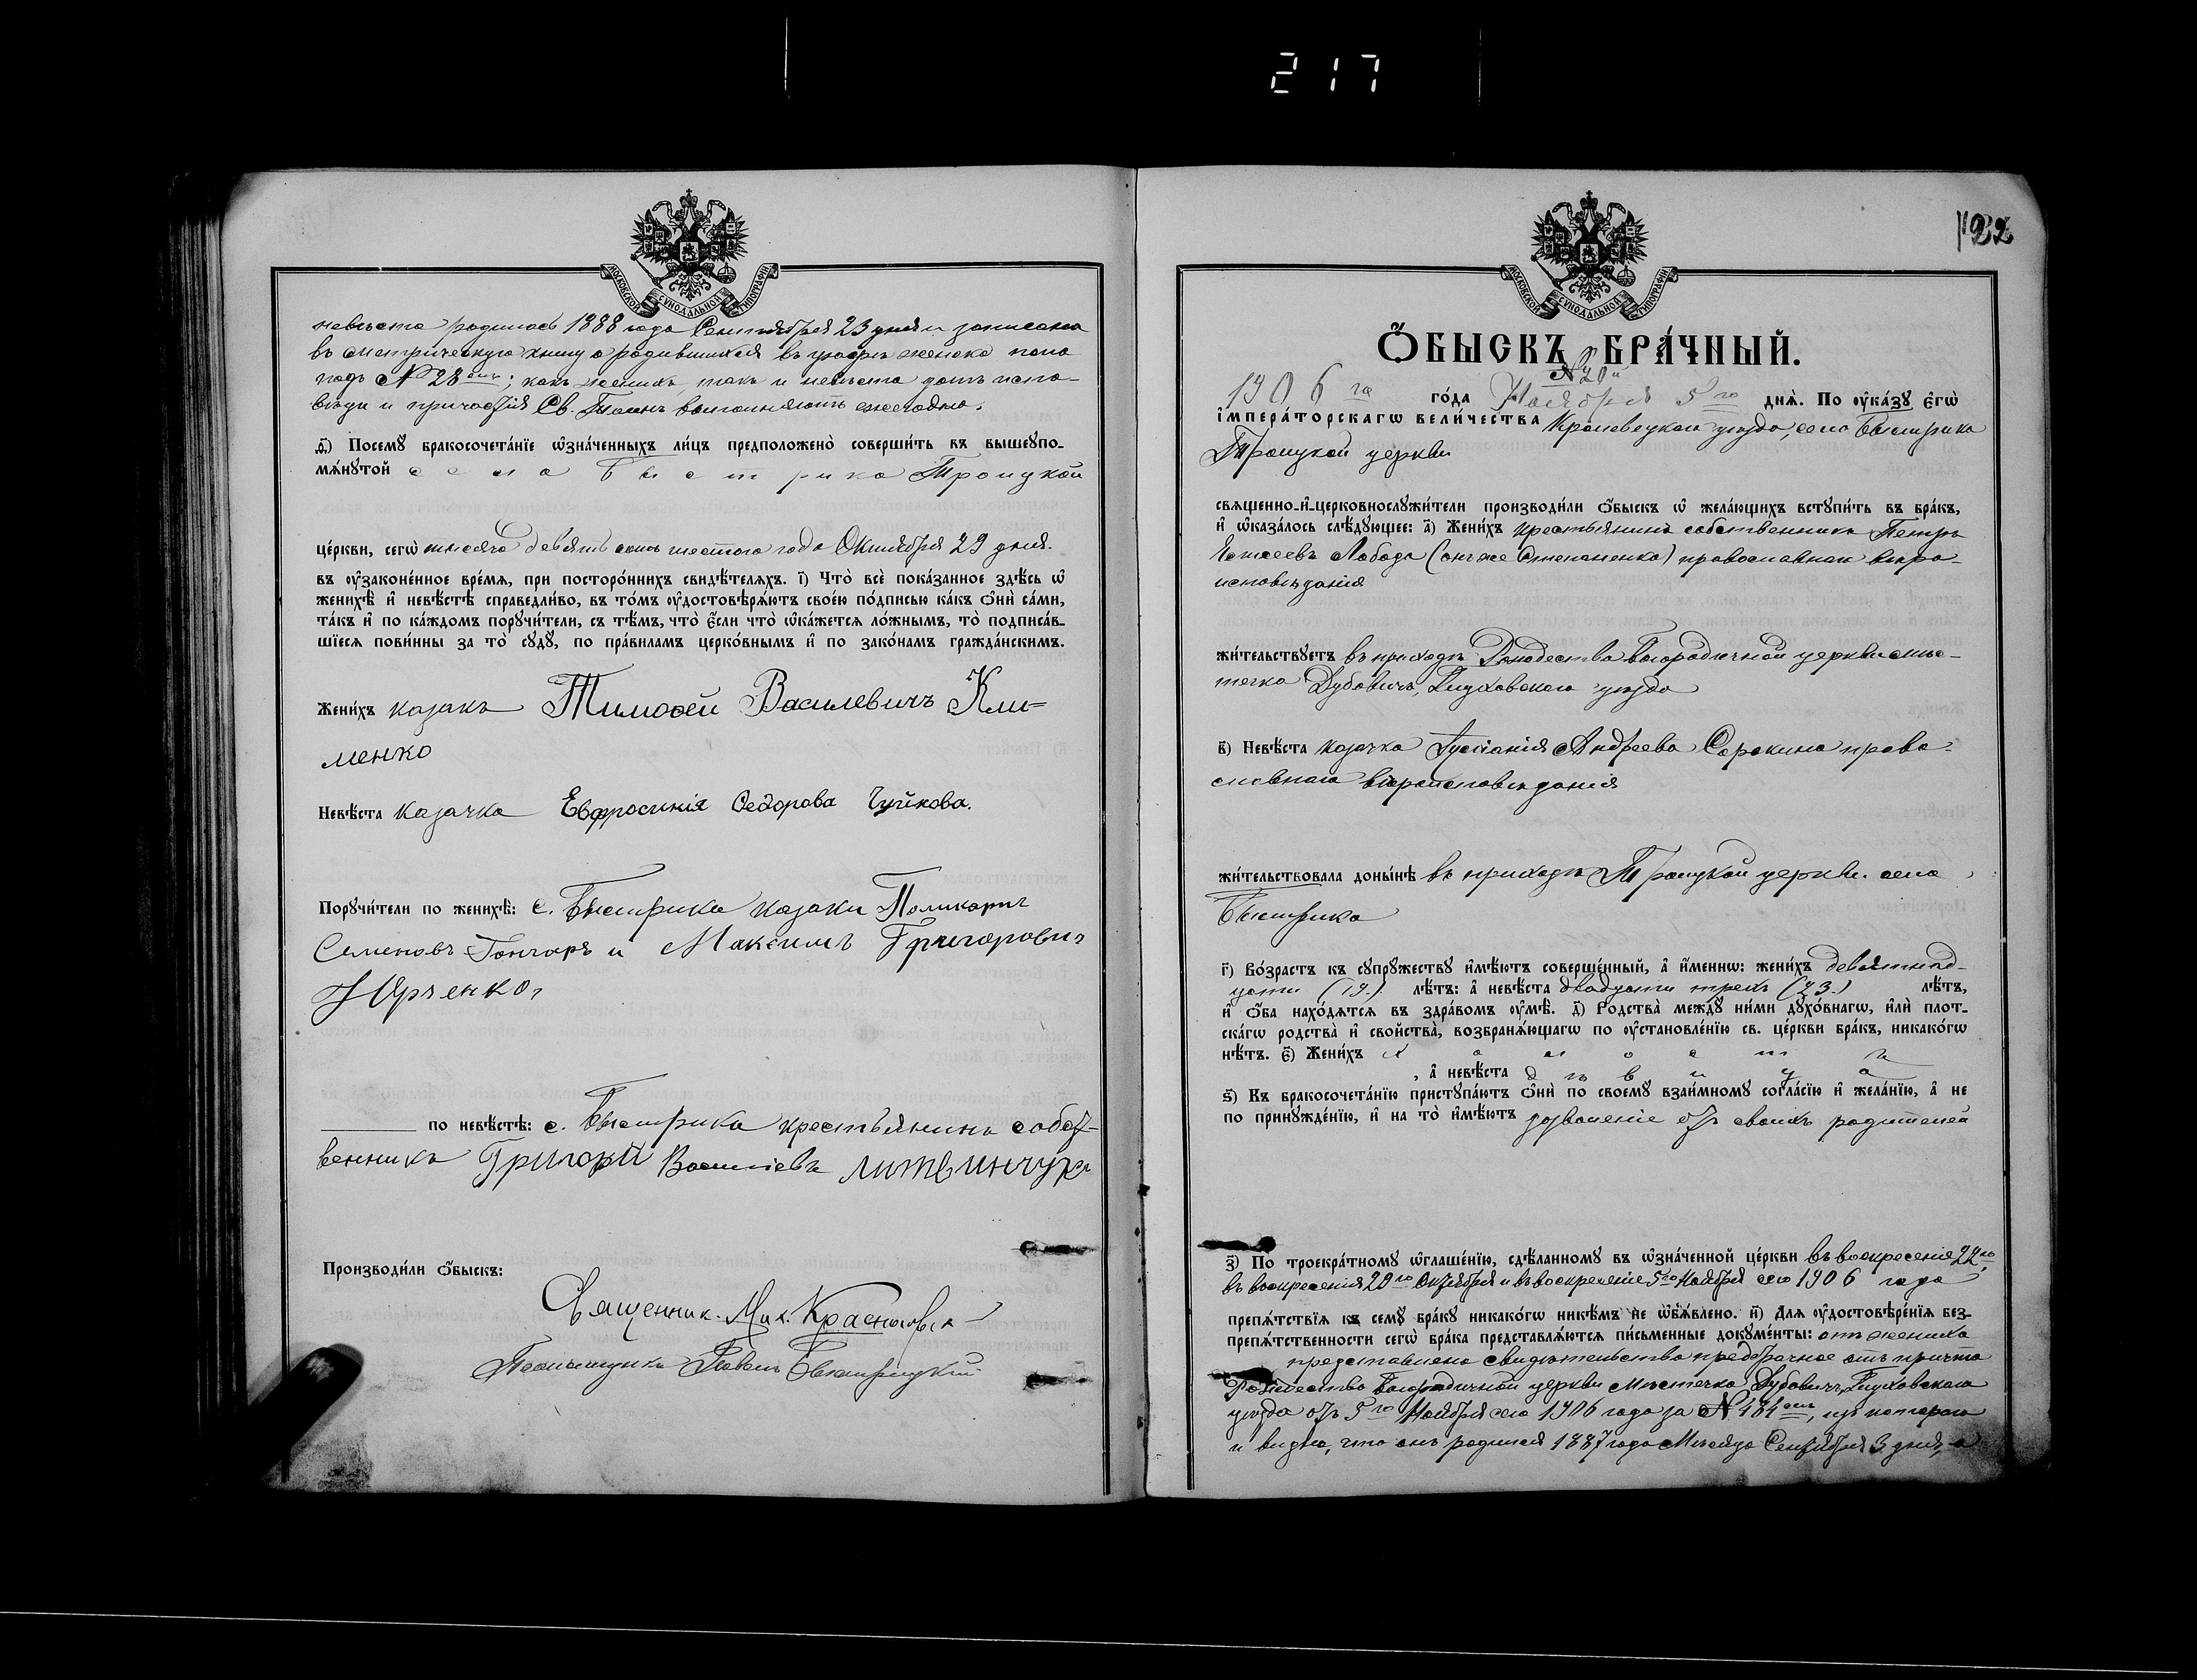 217
МОСКОВСКОЙ СѴНОДАЛЬНОЙ ТИПОГРАФІИ
невѣста родилась 1888 года Сентября 23 дня и записана
въ метрическую книгу о родившихся въ графѣ женска пола
подъ № 28 омъ; какъ женихъ, такъ и невѣста долгъ испо-
вѣди и причастія Св. Таинъ выполняютъ ежегодно.
ѳ҃) Посемꙋ бракосочета́нїе ѡ҆зна́ченныхъ ли́цъ предположено̀ соверши́ть въ вышеꙋпо-
мѧ́нꙋтой села Быстрика Троицкой
це́ркви, сегѡ̀ тысяча девятьсотъ шестого года Октября 29 дня.
въ ᲂу҆законе́нное вре́мѧ, при посторо́ннихъ свидѣ́телѧхъ. і҃) Что̀ всѐ пока́занное здѣ́сь ѡ҆
женихѣ̀ и҆ невѣ́стѣ справедли́во, въ то́мъ ᲂу҆достовѣрѧ́ютъ свое́ю по́дписью ка́къ ѻ҆нѝ са́ми,
та́къ и҆ по ка́ждомъ порꙋчи́тели, съ тѣ́мъ, что̀ є҆́сли что̀ ѡ҆ка́жетсѧ ло́жнымъ, то̀ подписа́в-
шїесѧ пови́нны за то̀ сꙋдꙋ̀, по пра́виламъ церко́внымъ и҆ по зако́намъ гражда́нскимъ.
Жени́хъ казакъ Тимоѳей Василевичъ Кли=
менко
Невѣ́ста казачка Евфросинія Ѳедорова Чуйкова.
Порꙋчи́тели по женихѣ̀: с. Быстрика казаки Поликарпъ
Семеновъ Гончаръ и Максимъ Григоровичъ
Юрченко,
по невѣ́стѣ: с. Быстрика крестьянинъ собст-
венникъ Григорій Василіевъ Литвинчукъ
Производи́ли ѻ҆́быскъ:
Священник. Мих. Красно
Псаломщикъ Павелъ Быстрицкій
122
МОСКОВСКОЙ СѴНОДАЛЬНОЙ ТИПОГРАФІИ
Ѻ҆́БЫСКЪ БРА́ЧНЫЙ.
№ 20й
1906 го го́да Ноября 5 го днѧ̀. По ᲂу҆ка́зꙋ є҆гѡ̀
и҆мпера́торскагѡ вели́чества Кролевецкаго уѣзда, села Быстрика
Троицкой церкви
свѧщенно-и҆-церковнослꙋжи́тели производи́ли ѻ҆́быскъ ѡ҆ жела́ющихъ встꙋпи́ть въ бра́къ,
и҆ ѡ҆каза́лось слѣ́дꙋющее: а҃) Жени́хъ крестьянинъ собственникъ Петръ
Лобода (онъ же Степаненко) православнаго вѣро-
исповѣданія
жи́тельствꙋетъ въ приходѣ Рождества Богородичной церкви мѣс-
течка Дубовичъ, Глуховскаго уѣзда
в҃) Невѣ́ста казачка Андреева Сорокина право-
славнаго вѣроисповѣданія
жи́тельствовала донынѣ въ приходѣ Троицкой церкви села
Быстрика
г҃) Во́зрастъ къ сꙋпрꙋ́жествꙋ и҆мѣ́ютъ соверше́нный, а҆ и҆́меннѡ: жени́хъ девятнад-
цати (19.) лѣ́тъ: а҆ невѣ́ста двадцати трехъ (23.) лѣ́тъ,
и҆ ѻ҆́ба нахо́дѧтсѧ въ здра́вомъ ᲂу҆мѣ̀. д҃) Родства̀ междꙋ̀ ни́ми дꙋхо́внагѡ, и҆лѝ плот-
ска́гѡ родства̀ и҆ свойства̀, возбранѧ́ющагѡ по ᲂу҆становле́нїю св. це́ркви бра́къ, никако́гѡ
нѣ́тъ. є҃) Жени́хъ холостъ
, а҆ невѣ́ста дѣвица
ѕ҃) Къ бракосочета́нїю пристꙋпа́ютъ ѻ҆нѝ по своемꙋ̀ взаи́мномꙋ согла́сїю и҆ жела́нїю, а҆ не
по принꙋжде́нїю, и҆ на то̀ и҆мѣ́ютъ дозволеніе отъ своихъ родителей
з҃) По троекра́тномꙋ ѡ҆глаше́нїю, сдѣ́ланномꙋ въ ѡ҆зна́ченной це́ркви въ воскресенія 22 го
въ воскресенія 29 го Октября и въ воскресеніе 5 го Ноября сего 1906 года
препѧ́тствїѧ къ семꙋ̀ бра́кꙋ никако́гѡ никѣ́мъ не ѡ҆б̾ѧ́влено. и҃) Длѧ ᲂу҆достовѣре́нїѧ без-
препѧ́тственности сегѡ̀ бра́ка представлѧ́ютсѧ пи́сьменные докꙋме́нты: отъ жениха
представлено свидѣтельство предбрачное отъ причта
Рождество Богородичной церкви мѣстечка Дубовичъ, Глуховскаго
уѣзда отъ 5 го Ноября сего 1906 года за № 181 омъ, изъ котораго
и видно, что онъ родился 1887 года Мѣсяца Сентября 3 дня, а